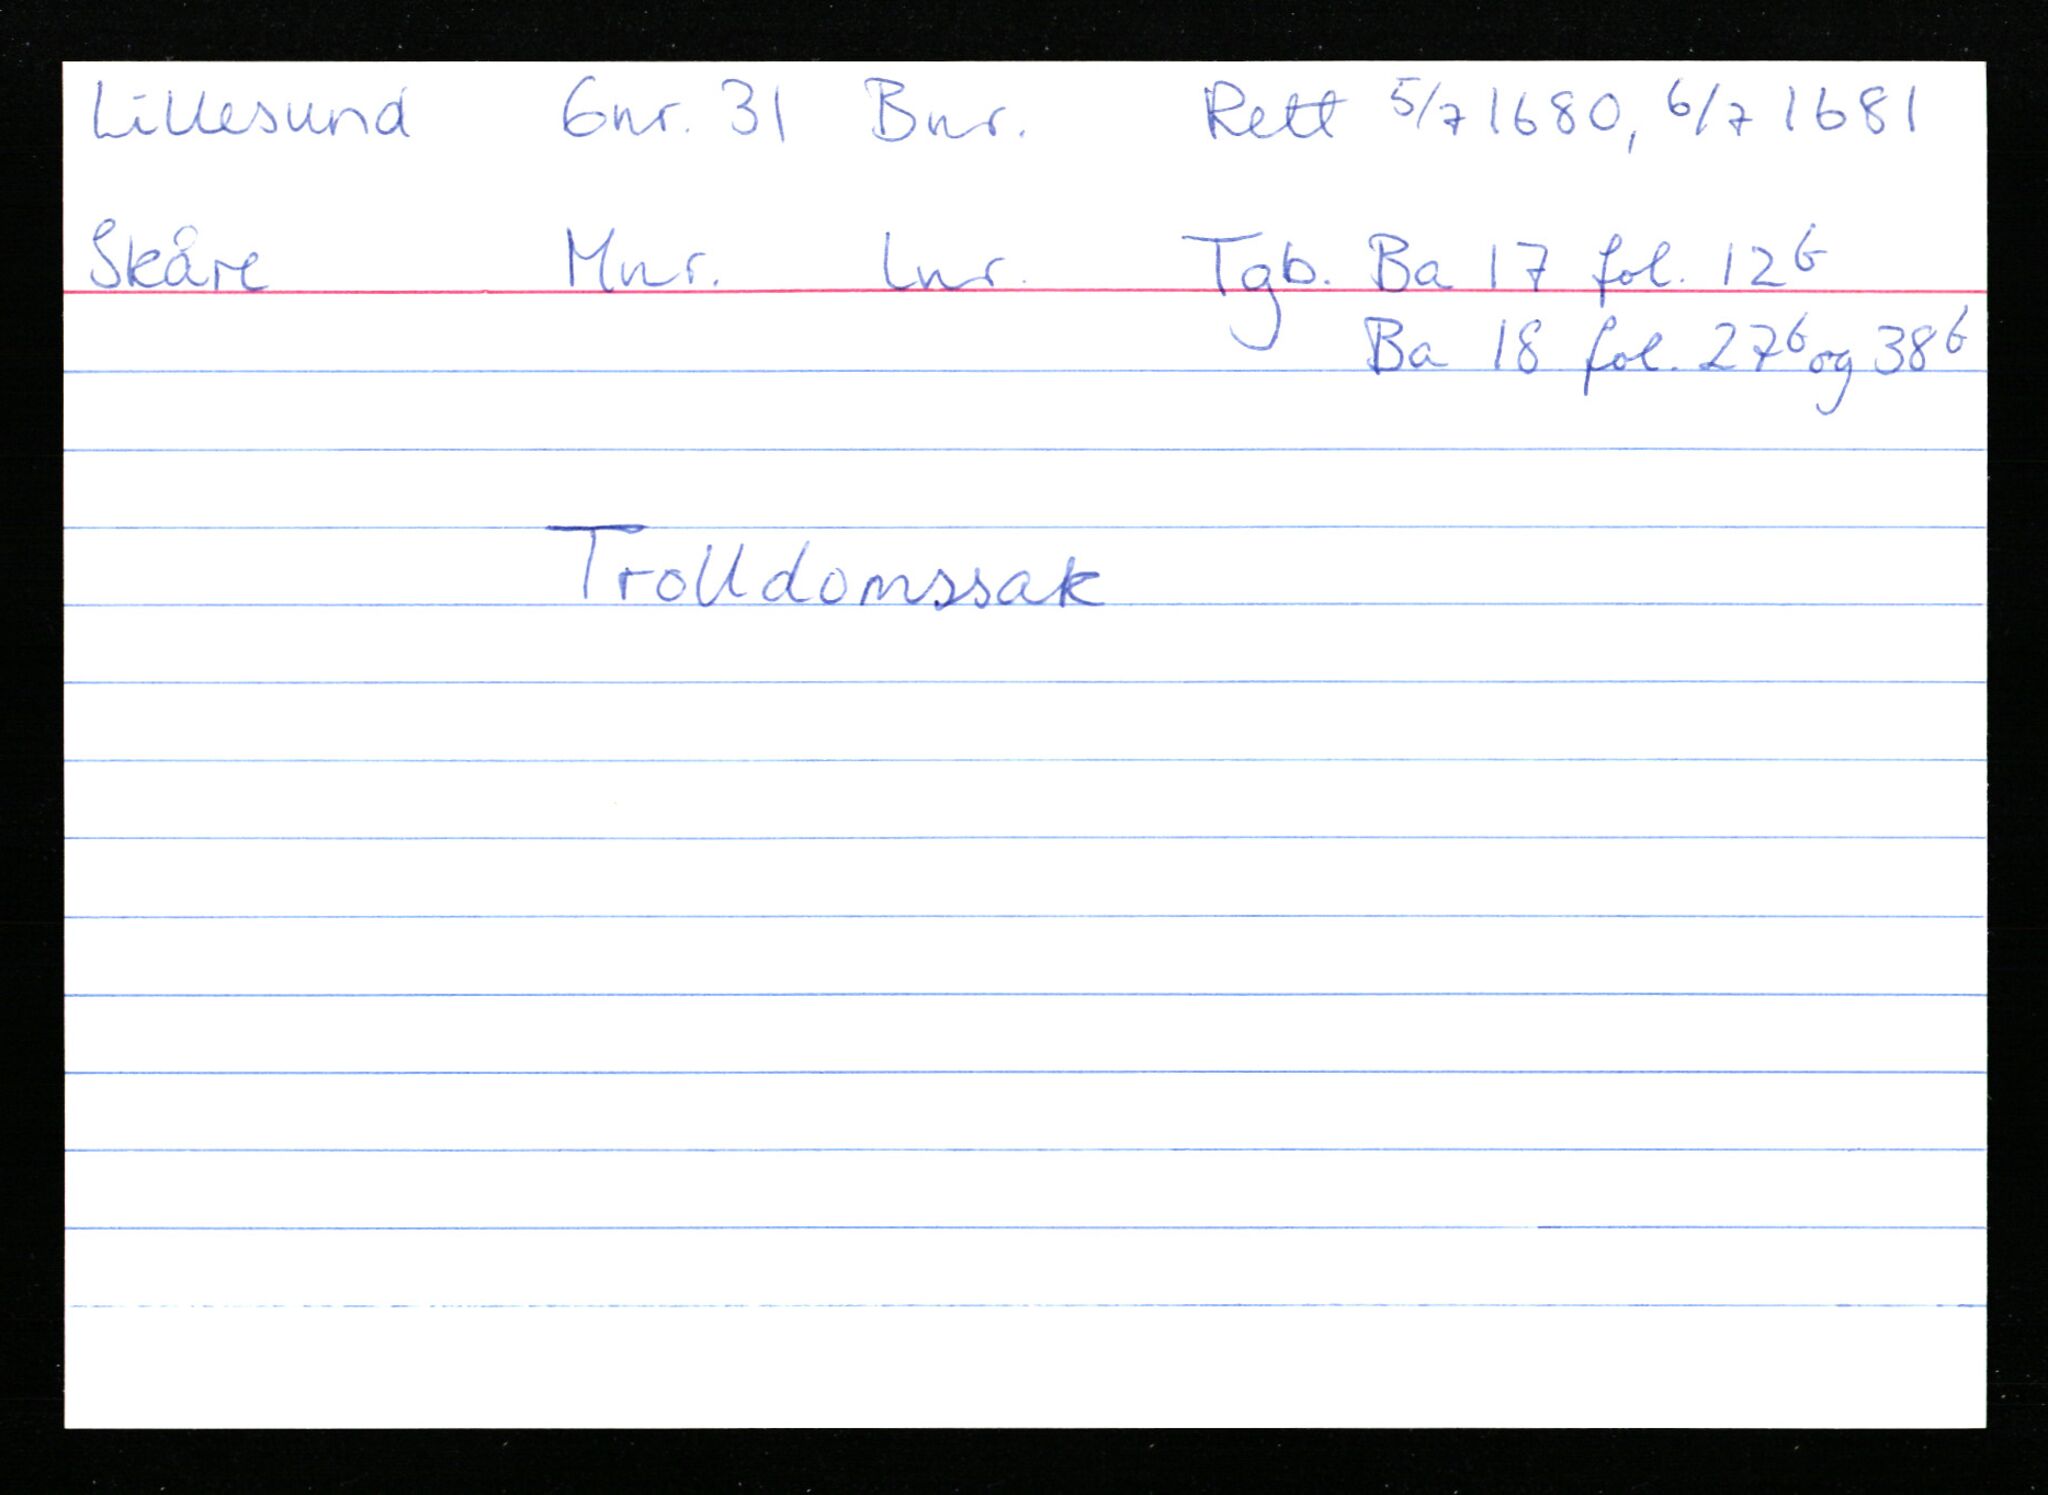 Lillesund Gnr. 31 Bnr. Rett 5/7 1680, 6/7 1681
Skåre Mnr. Lnr. Tgb. Ba 17 fol. 12b
Ba 18 fol. 27b og 38b
Trolldomssak